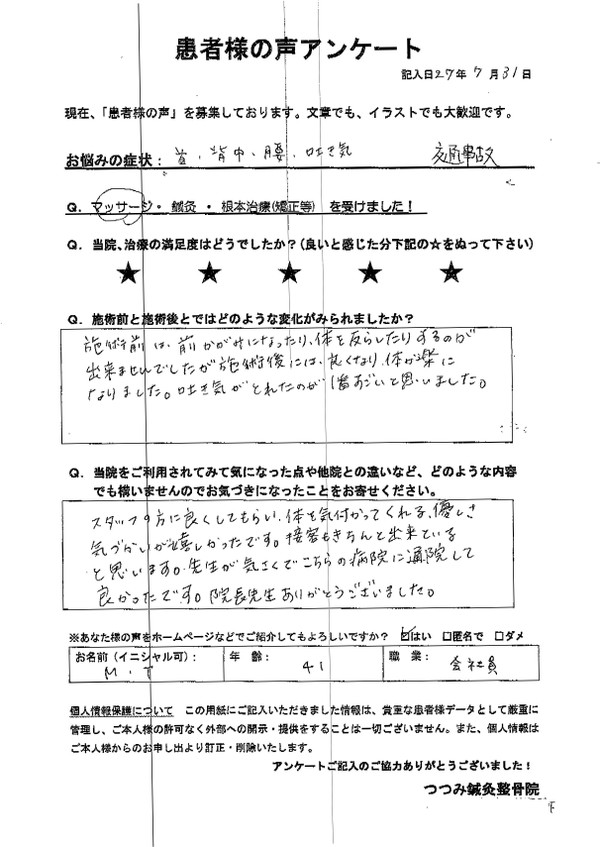 患者様の声アンケート
記入日27年7月31日
現在、「患者様の声」を募集しております。文章でも、イラストでも大歓迎です。
お悩みの症状: 首、背中、腰、吐き気 交通事故
Q. マッサージ・ 鍼灸 ・ 根本治療(矯正等) を受けました!
Q. 当院、治療の満足度はどうでしたか?(良いと感じた分下記の☆をぬって下さい)
★ ★ ★ ★ ★
Q. 施術前と施術後とではどのような変化がみられましたか?
施術前は、前かがみになったり、体を反らしたりするのが
出来ませんでしたが施術後には、良くなり、体が楽に
なりました。吐き気がとれたのが1番すごいと思いました。
Q. 当院をご利用されてみて気になった点や他院との違いなど、どのような内容
でも構いませんのでお気づきになったことをお寄せください。
スタッフの方に良くしてもらい、体を気付かってくれる、優しさ
気づかいが嬉しかったです。接客もきちんと出来ている
と思います。先生が気さくでこちらの病院に通院して
良かったです。院長先生ありがとうございました。
※あなた様の声をホームページなどでご紹介してもよろしいですか? ☑はい □匿名で □ダメ
お名前(イニシャル可): M・T 年 齢: 41 職 業: 会社員
個人情報保護について この用紙にご記入いただきました情報は、貴重な患者様データとして厳重に
管理し、ご本人様の許可なく外部への開示・提供をすることは一切ございません。また、個人情報は
ご本人様からのお申し出より訂正・削除いたします。
アンケートご記入のご協力ありがとうございました!
つつみ鍼灸整骨院